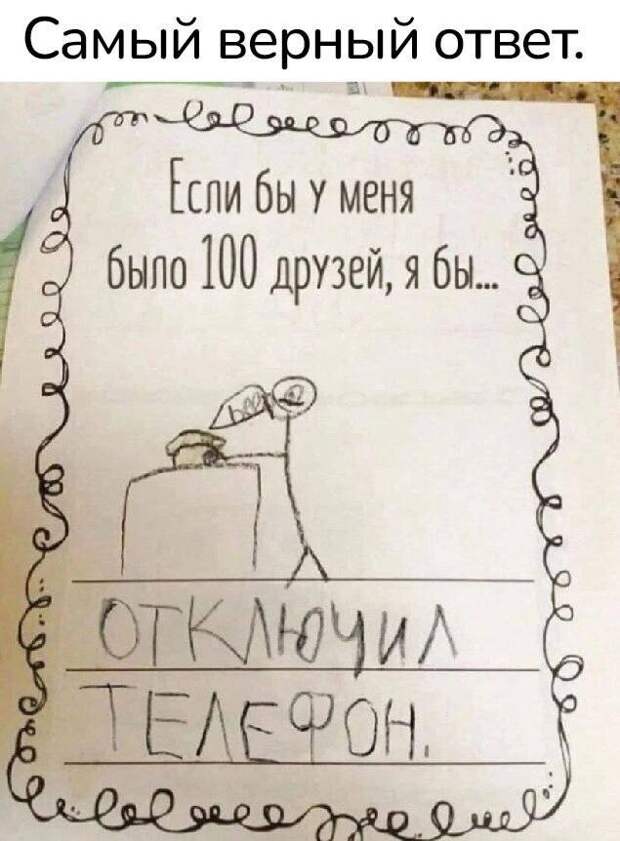 Самый верный ответ.
Если бы у меня
было 100 друзей, я бы...
beep
ОТКЛЮЧИЛ
ТЕЛЕФОН.